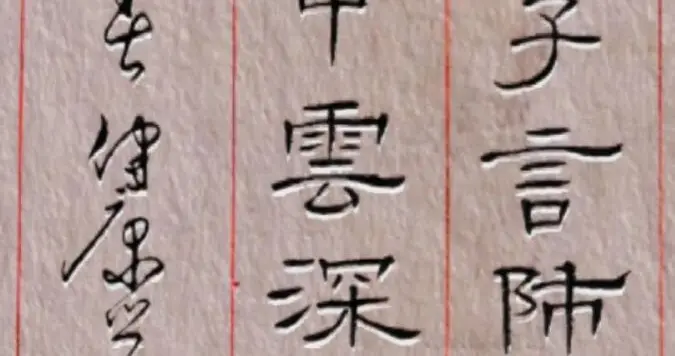 子言師
中雲深
健康